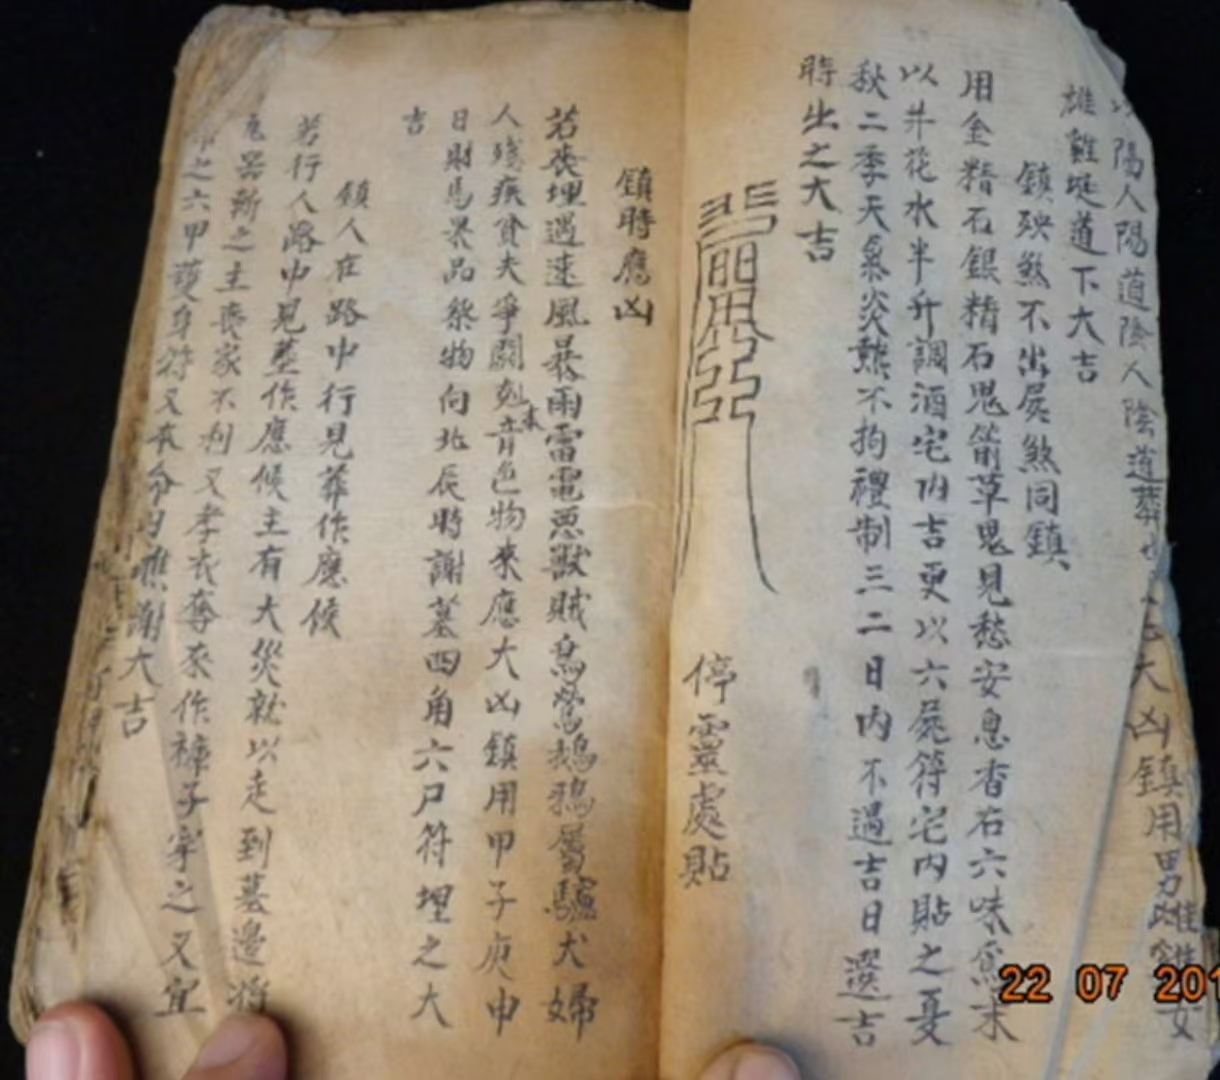 陽人陽道陰人陰道葬 大凶鎮用男雌雞女
雄雞埏道下大吉
鎮殃煞不出屍煞同鎮
用金精石銀精石鬼箭草鬼見愁安息香石六味為末
以井花水半升調酒宅內吉更以六屍符宅內貼之憂
秋二季天氣炎熱不拘禮制三二日內不過吉日選吉
時出之大吉
停靈處貼
鎮時應凶
若丧埋遇速風暴雨雷電惡獸賊鳥鶯鵝鴉屬驢犬婦
人殘疾貧夫爭鬪尅本音色物來應大凶鎮用甲子庚申
日財馬果品祭物向北辰時謝墓四角六尸符埋之大
吉
鎮人在路中行見葬作應候
若行人路中見墓作應候主有大災就以走到墓邊將
鬼器斬之主喪家不利又孝衣奪來作褲子穿之又宜
之六甲護身符又本命日醮謝大吉
22 07 201